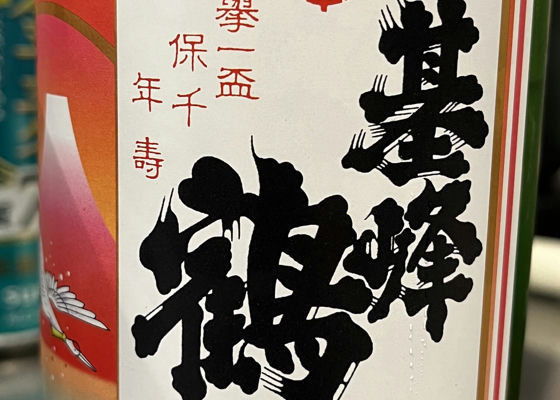 基峰
鶴
擧一盃
保千
年壽